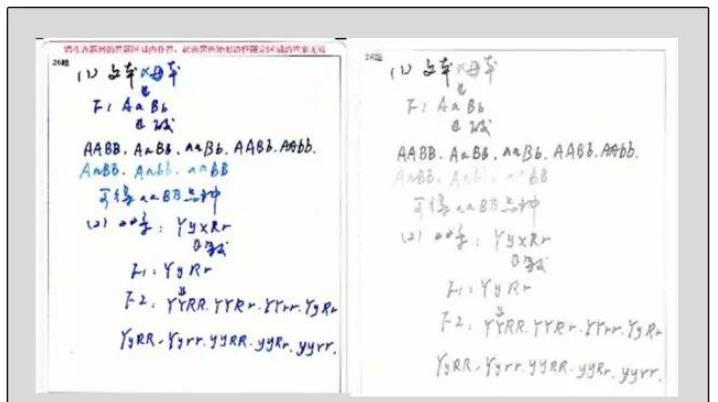 请在各题目的答题区域内作答，超出黑色矩形边框限定区域的答案无效
26题
(1) 父本×母本
↓
F1 AaBb
AABB. AaBB. aaBb. AABb. AAbb.
AaBb. Aabb. aaBB
可得aaBB品种
(2) : Yy×Rr
F1: YyRr
F2: YYRR. YYRr. YYrr. YyRr
YyRR. Yyrr. yyRR. yyRr. yyrr.
26题
(1) 父本×母本
↓
F1 AaBb
AABB. AaBB. aaBb. AABb. AAbb.
AaBb. Aabb. aaBB
可得aaBB品种
(2) : Yy×Rr
F1: YyRr
F2: YYRR. YYRr. YYrr. YyRr
YyRR. Yyrr. yyRR. yyRr. yyrr.